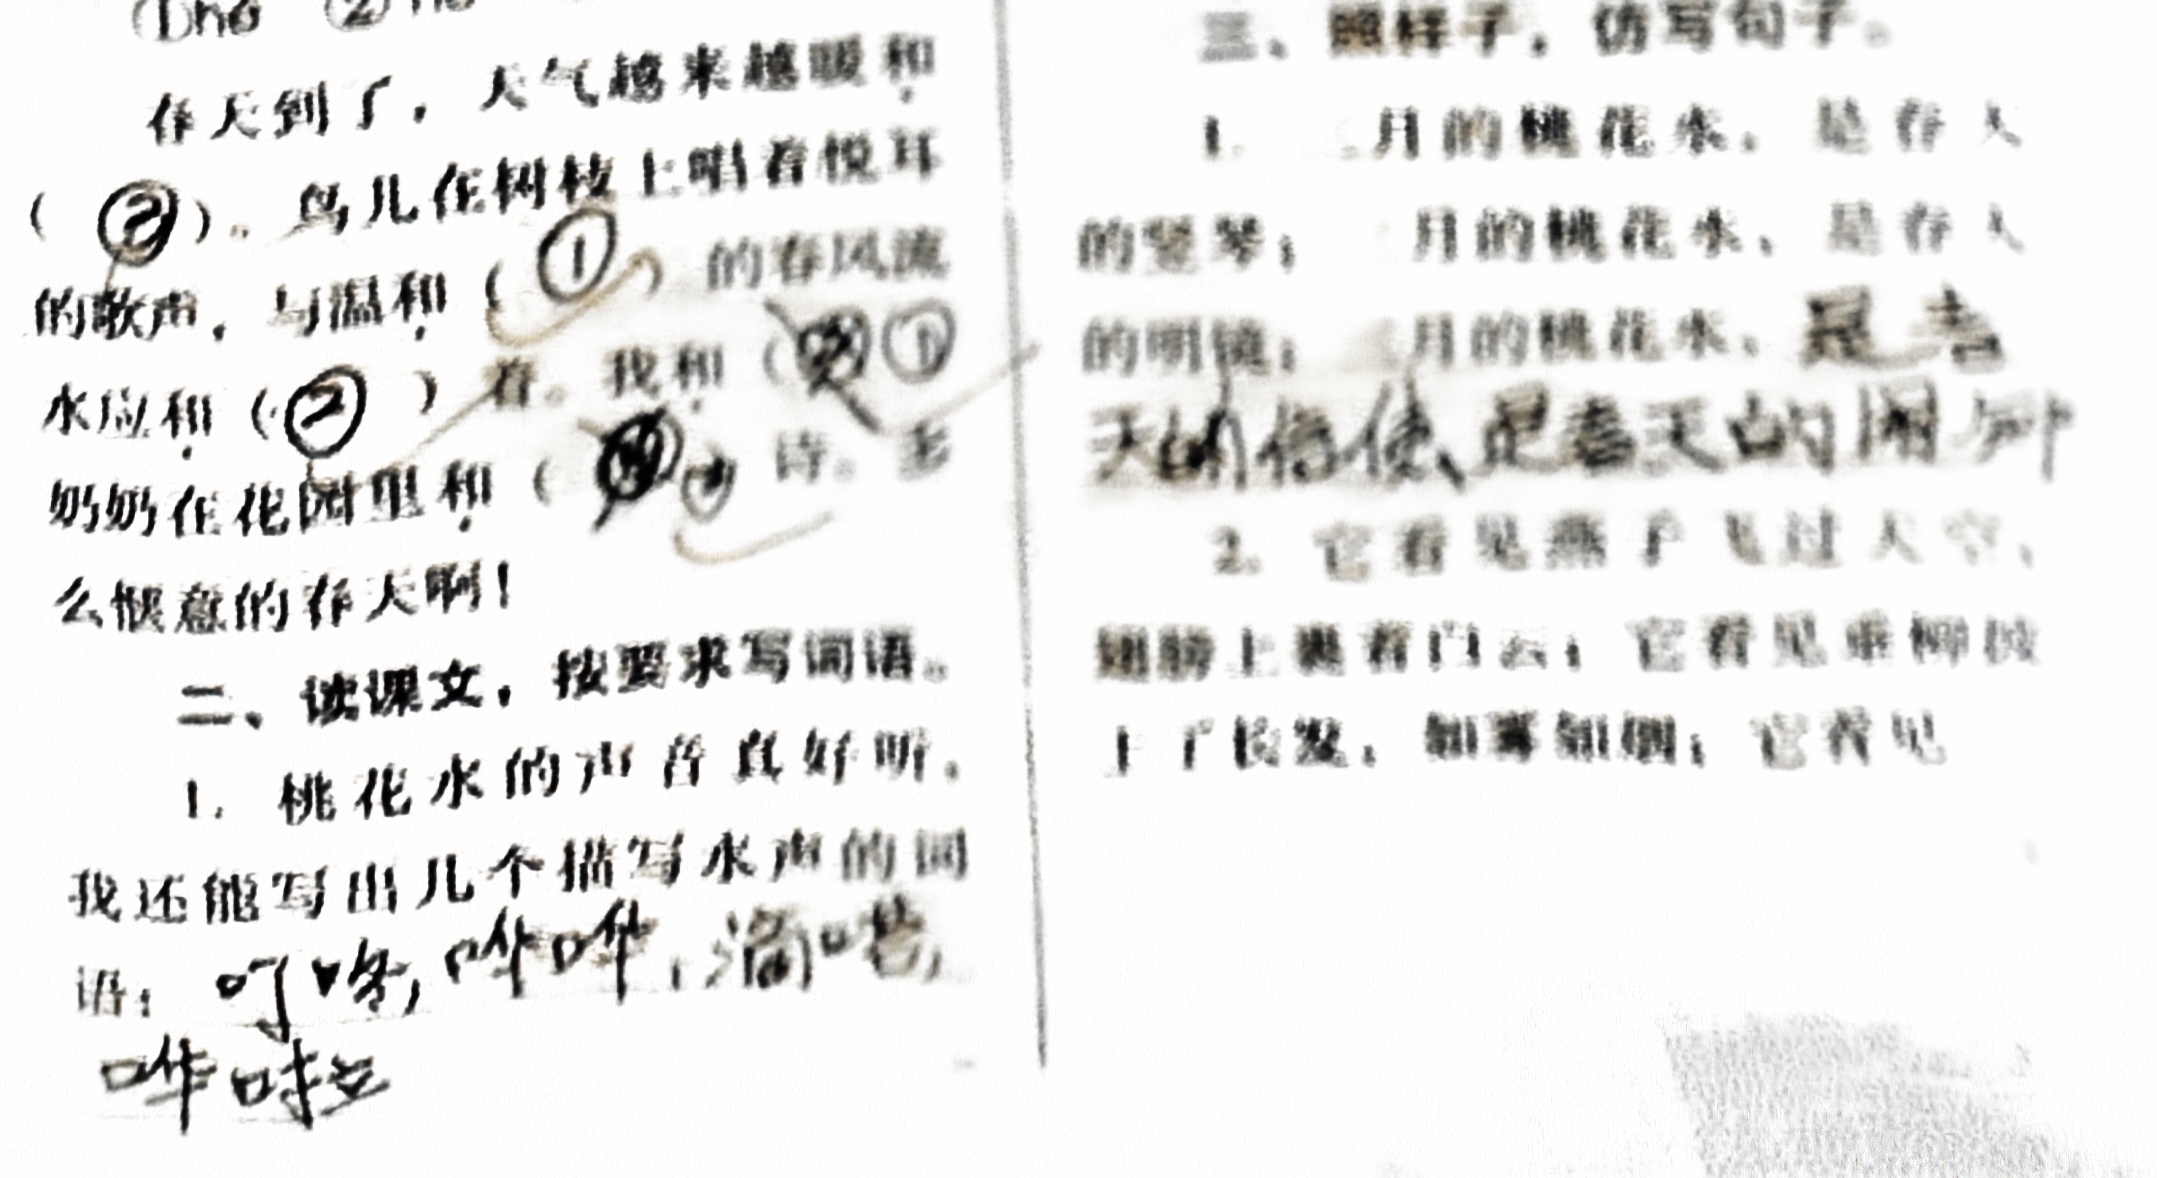 ①hé ②
春天到了，天气越来越暖和
（②）。鸟儿在树枝上唱着悦耳
的歌声，与温和（①）的春风流
水应和（②）着。我和（①
奶奶在花园里和（ ）诗。多
么惬意的春天啊！
二、读课文，按要求写词语。
1. 桃花水的声音真好听，
我还能写出几个描写水声的词
语：叮咚，哗哗，滴嗒，
哗啦
三、照样子，仿写句子。
1. 月的桃花水，是春天
的竖琴；月的桃花水，是春天
的明镜；三月的桃花水，是春
天的信使、是春天的闹钟
2. 它看见燕子飞过天空，
翅膀上裹着白云；它看见垂柳披
上了长发，如雾如烟；它看见